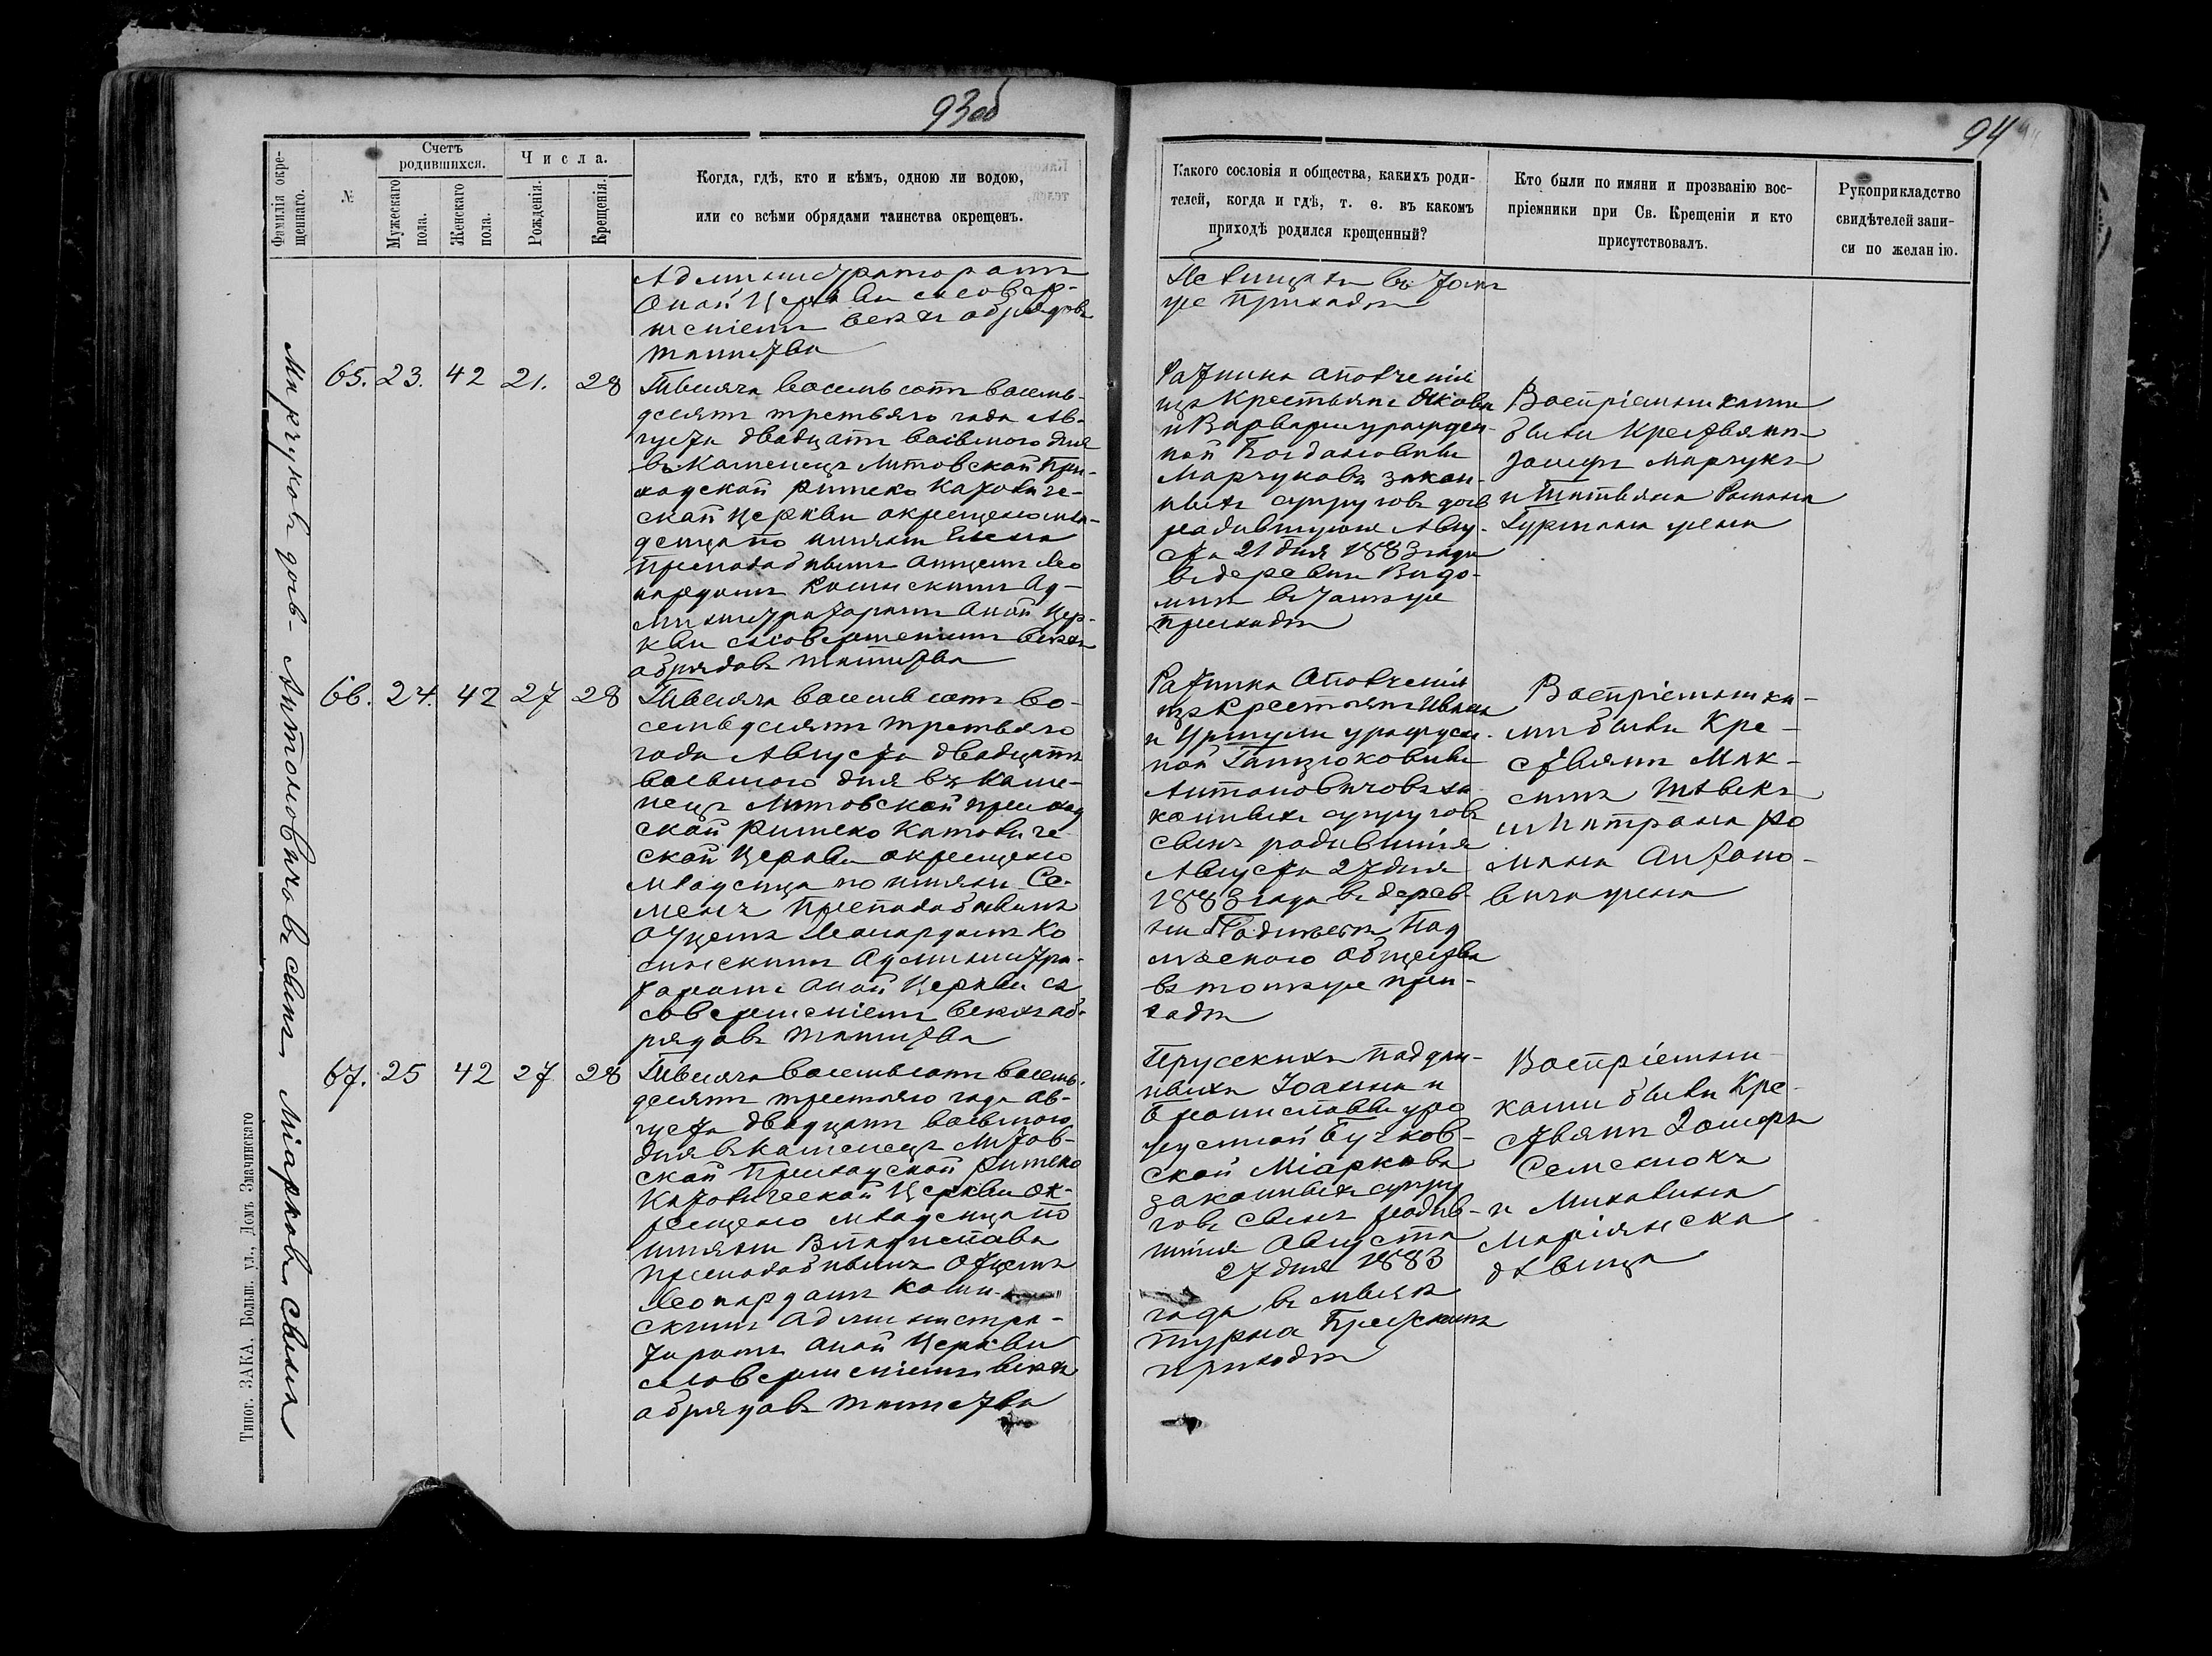 93об
Фамилія окре-
щеннаго.
№
Счетъ
родившихся.
Мужескаго
пола.
Женскаго
пола.
Числа.
Рожденія.
Крещенія.
Когда, гдѣ, кто и кѣмъ, одною ли водою,
или со всѣми обрядами таинства окрещенъ.
Администраторомъ
оной Церкви съ совер-
шеніемъ всѣхъ обрядовъ
таинства
Марчуковъ дочь
65. 23. 42 21. 28
Тысяча восемьсотъ восемь-
десятъ третьяго года Ав-
густа двадцать восьмого дня
въ Каменецъ Литовской При-
ходской Римско Католиче-
ской Церкви окрещено мла-
денца по имяни Елена
преподобнымъ отцемъ Лео
нардомъ Ад-
министраторомъ оной Цер-
кви съ совершеніемъ всѣхъ
обрядовъ таинства
Антоновичовъ сынъ
66. 24. 42 27 28
Тысяча восемьсотъ во-
семьдесятъ третьяго
года Августа двадцать
восьмого дня въ Каме-
нецъ Литовской приход
ской Римско Католиче-
ской Церкви окрещено
младенца по имяни Се-
менъ преподобнымъ
отцемъ Леонардомъ Ко
Администра-
торомъ оной Церкви съ
совершеніемъ всѣхъ об-
рядовъ таинства
Міарковъ сынъ
67. 25 42 27 28
Тысяча восемьсотъ восемь-
десятъ третьяго года Ав-
густа двадцать восьмого
дня въ Каменецъ Литов-
ской Приходской Римско
Католической Церкви ок-
рещено младенца по
имяни Владиславъ
преподобнымъ отцемъ
Леонардомъ
скимъ Администра-
торомъ оной Церкви
съ совершеніемъ всѣхъ
обрядовъ таинства
Типог. ЗАКА, Больш. ул., Домъ Змачинскаго
94
Какого сословія и общества, какихъ роди-
телей, когда и гдѣ, т. е. въ какомъ
приходѣ родился крещенный?
Кто были по имяни и прозванію вос-
пріемники при Св. Крещеніи и кто
присутствовалъ.
Рукоприкладство
свидѣтелей запи-
си по желанію.
въ томъ
же приходѣ
Ратника ополченія
изъ Крестьянъ Якова
и Варвары урожден-
ной Богдановичъ
Марчуковъ закон-
ныхъ супруговъ дочь
родившуюся Авгу-
ста 21 дня 1883 года
въ деревни Видо-
мля въ томъ же
приходѣ
Воспріемниками
были Крестьяне
Іосифъ Марчукъ
и Татьяна Романа
жена
Ратника Ополченія
изъ Крестьянъ Ивана
и Уршули урожден-
ной
Антоновичовъ за-
конныхъ супруговъ
сынъ родившійся
Августа 27 дня
1883 года въ дерев-
ни Под
общества
въ томъ же при-
ходѣ
Воспріемника-
ми были Кре-
стьяне Мак-
симъ
и Ро
мана Антоно-
вича жена
Прусскихъ поддан-
ныхъ Іоанна и
Брониславы уро
жденной Бучков-
ской Міарковъ
законныхъ супру
говъ сынъ родив-
шійся Августа
27 дня 1883
года въ
Турна Брестскимъ
приходѣ
Воспріемни-
ками были Кре-
стьяне Іосифъ
Семенюкъ
и Михалина
Маріянска
дѣвица